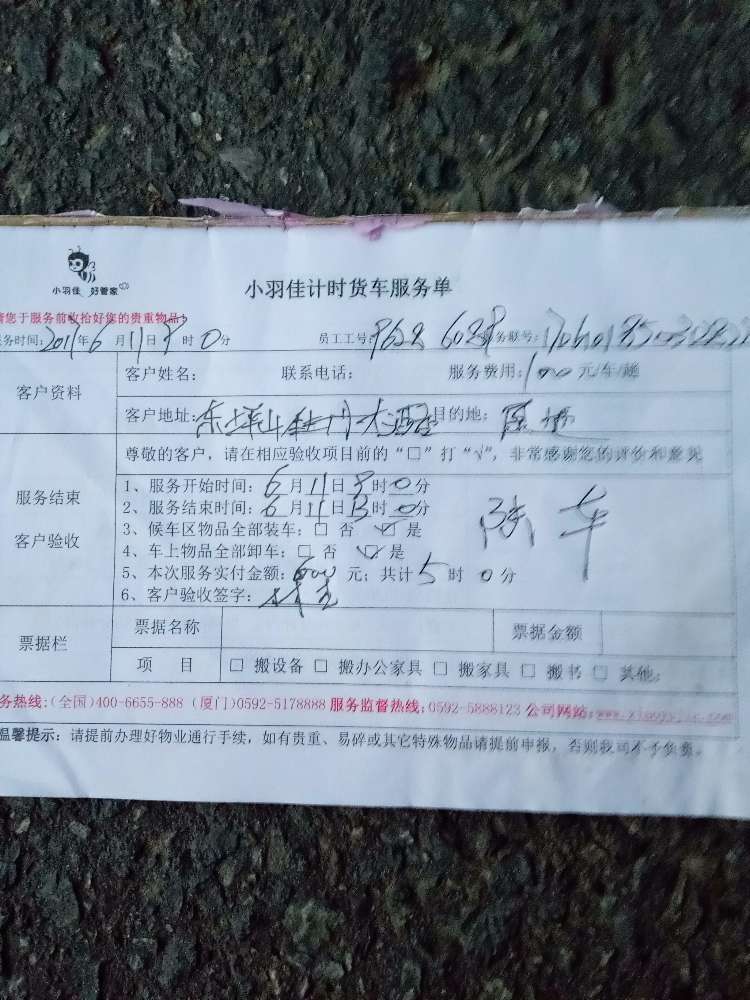 小羽佳 好管家
小羽佳计时货车服务单
请您于服务前收拾好您的贵重物品!
务时间:2017年6月11日8时0分 员工工号: 务联号:
客户资料
客户姓名: 联系电话: 服务费用:100元/车/趟
客户地址:东坪山 大酒店 目的地:
尊敬的客户，请在相应验收项目前的“□”打“√”，非常感谢您的评价和意见
服务结束
客户验收
1、服务开始时间:6月11日8时0分
2、服务结束时间:6月11日13时0分
3、候车区物品全部装车:□ 否 ☑ 是
4、车上物品全部卸车:□ 否 ☑ 是
5、本次服务实付金额:600元; 共计5时0分
6、客户验收签字:
票据栏
票据名称 票据金额
项 目 □ 搬设备 □ 搬办公家具 □ 搬家具 □ 搬书 □ 其他:
务热线:(全国)400-6655-888 (厦门)0592-5178888 服务监督热线:0592-5888123 公司网站:
温馨提示: 请提前办理好物业通行手续，如有贵重、易碎或其它特殊物品请提前申报，否则我司不予负责。